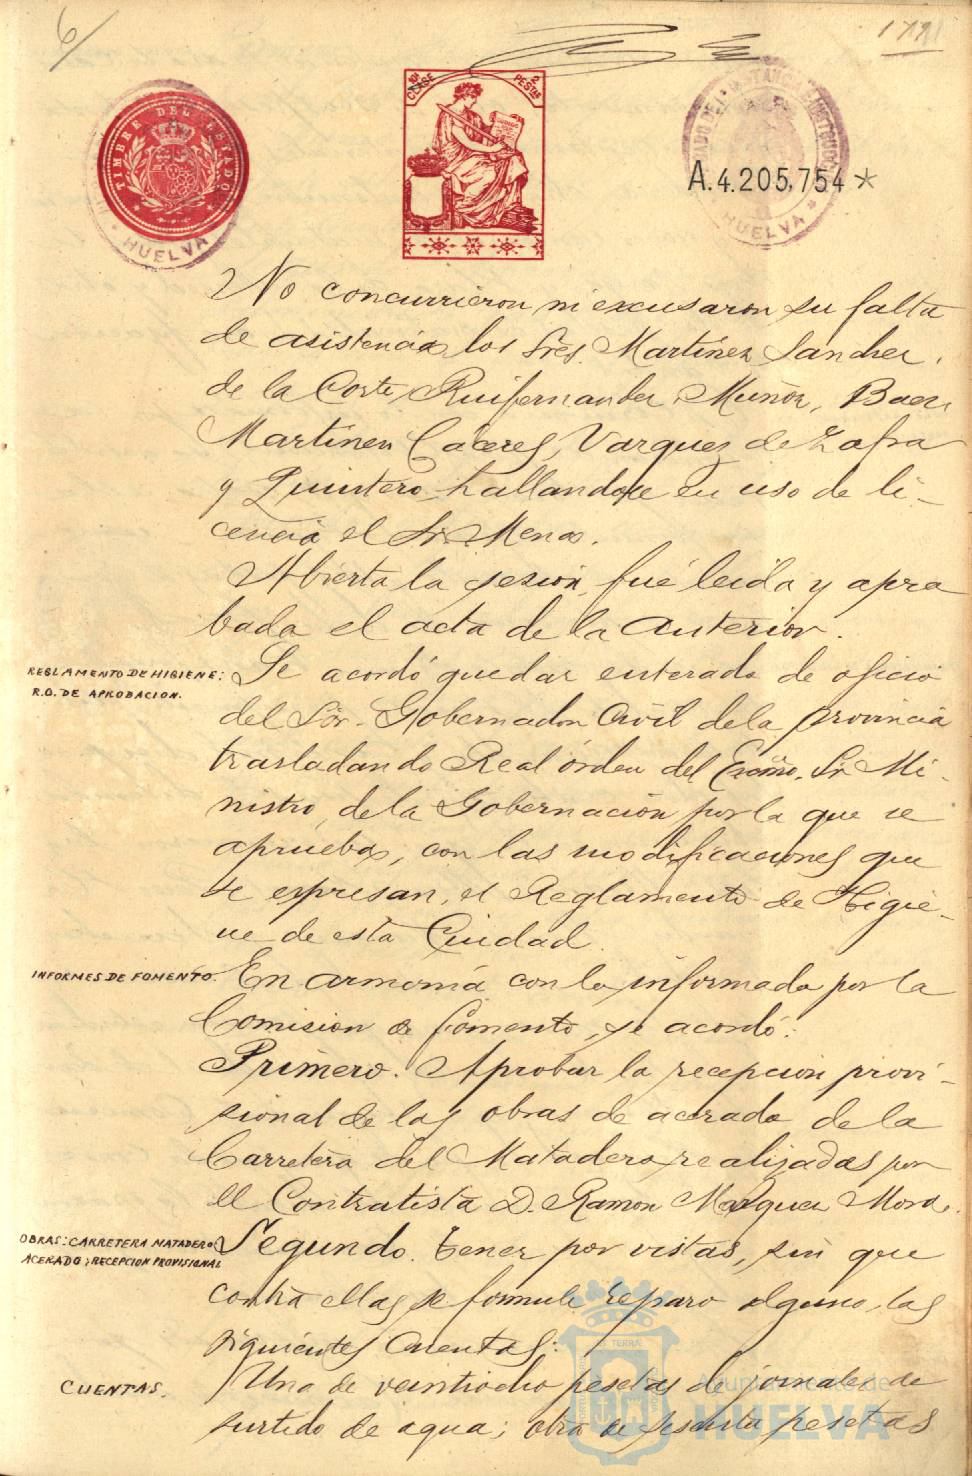 6/
1771
TIMBRE DEL ESTADO
HUELVA
8ª CLASE
2 PESETAS
JUZGADO DE 1ª INSTANCIA E INSTRUCCION
HUELVA
A.4.205,754*
No concurrieron ni excusaron su falta
de asistencia los Sres. Martinez Sanchez,
de la Corte, Ruifernandez, Muñoz, Baez,
Martinez Cáceres, Vazquez de Zafra
y Quintero, hallandose en uso de li-
cencia el Sr. Mena.
Abierta la sesión, fué leida y apro
bada el acta de la anterior.
REGLAMENTO DE HIGIENE:
R.O. DE APROBACION.
Se acordó quedar enterado de oficio
del Sór. Gobernador Civil de la provincia
trasladando Real órden del Excmo. Sr. Mi-
nistro de la Gobernación por la que se
aprueba, con las modificaciones que
se expresan, el Reglamento de Higie-
ne de esta Ciudad.
INFORMES DE FOMENTO.
En armonía con lo informado por la
Comisión de Fomento, se acordó:
Primero. Aprobar la recepción provi-
sional de las obras de acerado de la
Carretera del Matadero, realizadas por
el Contratista D. Ramon Marquez Mora.
OBRAS: CARRETERA MATADERO
ACERADO; RECEPCION PROVISIONAL
Segundo. Tener por vistas, sin que
contra ellas se formule reparo alguno, las
siguientes cuentas:
CUENTAS.
Una de veintiocho pesetas de jornales de
surtido de agua; otra de sesenta pesetas
Ayuntamiento de
HUELVA